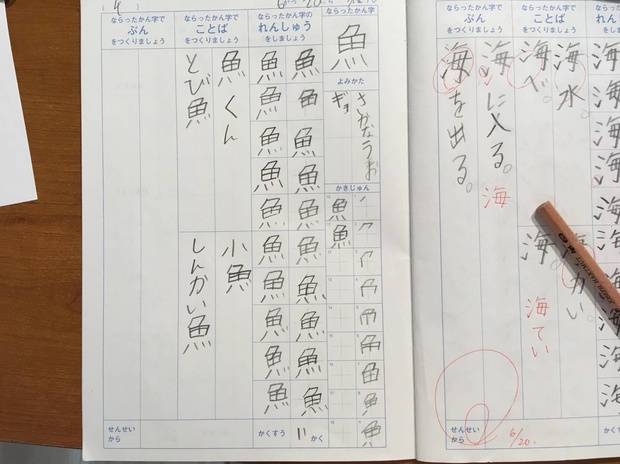 ならったかん字
魚
よみかた
さかな うお
ギョ
かきじゅん
魚
魚
ならったかん字の
れんしゅう
をしましょう
魚 魚
魚 魚
魚 魚
魚 魚
魚 魚
魚 魚
魚 魚
魚 魚
魚 魚
魚 魚
かくすう 11 かく
ならったかん字で
ことば
をつくりましょう
魚くん
小魚
とび魚
しんかい魚
ならったかん字で
ぶん
をつくりましょう
せんせい
から
4
6 20
海
海
海
海
海
海
海
海
ならったかん字で
ことば
をつくりましょう
海水。
海べ。
海
海てい
ならったかん字で
ぶん
をつくりましょう
海に入る。
海
海を出る。
せんせい
から
6/20.